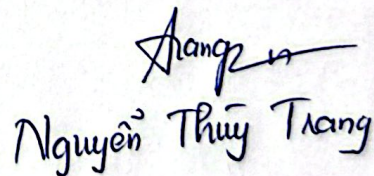 Trang
Nguyễn Thùy Trang